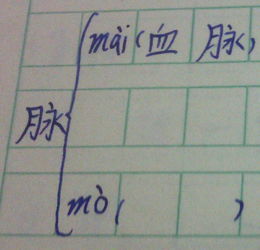 mài(血脉)
脉
mò( )